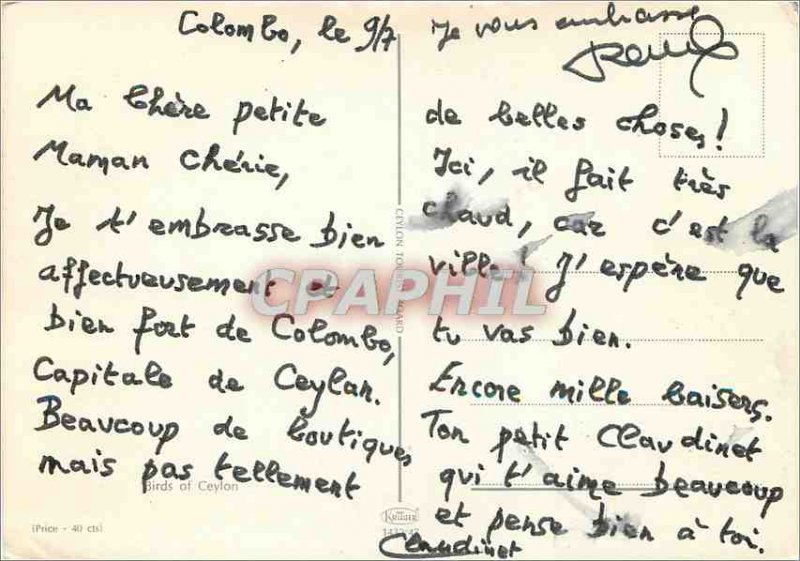 Colombo, le 9/7
Ma Chère petite
Maman Chérie,
Je t'embrasse bien
affectueusement et
bien fort de Colombo,
Capitale de Ceylan.
Beaucoup de boutiques
mais pas tellement
de belles choses!
Ici, il fait très
chaud, car c'est la
ville! J'espère que
tu vas bien.
Encore mille baisers.
Ton petit Claudinet
qui t'aime beaucoup
et pense bien à toi.
Claudinet
Je vous embrasse
CEYLON TOURIST BOARD
CPAPHIL
Birds of Ceylon
(Price - 40 cts)
KRÜGER